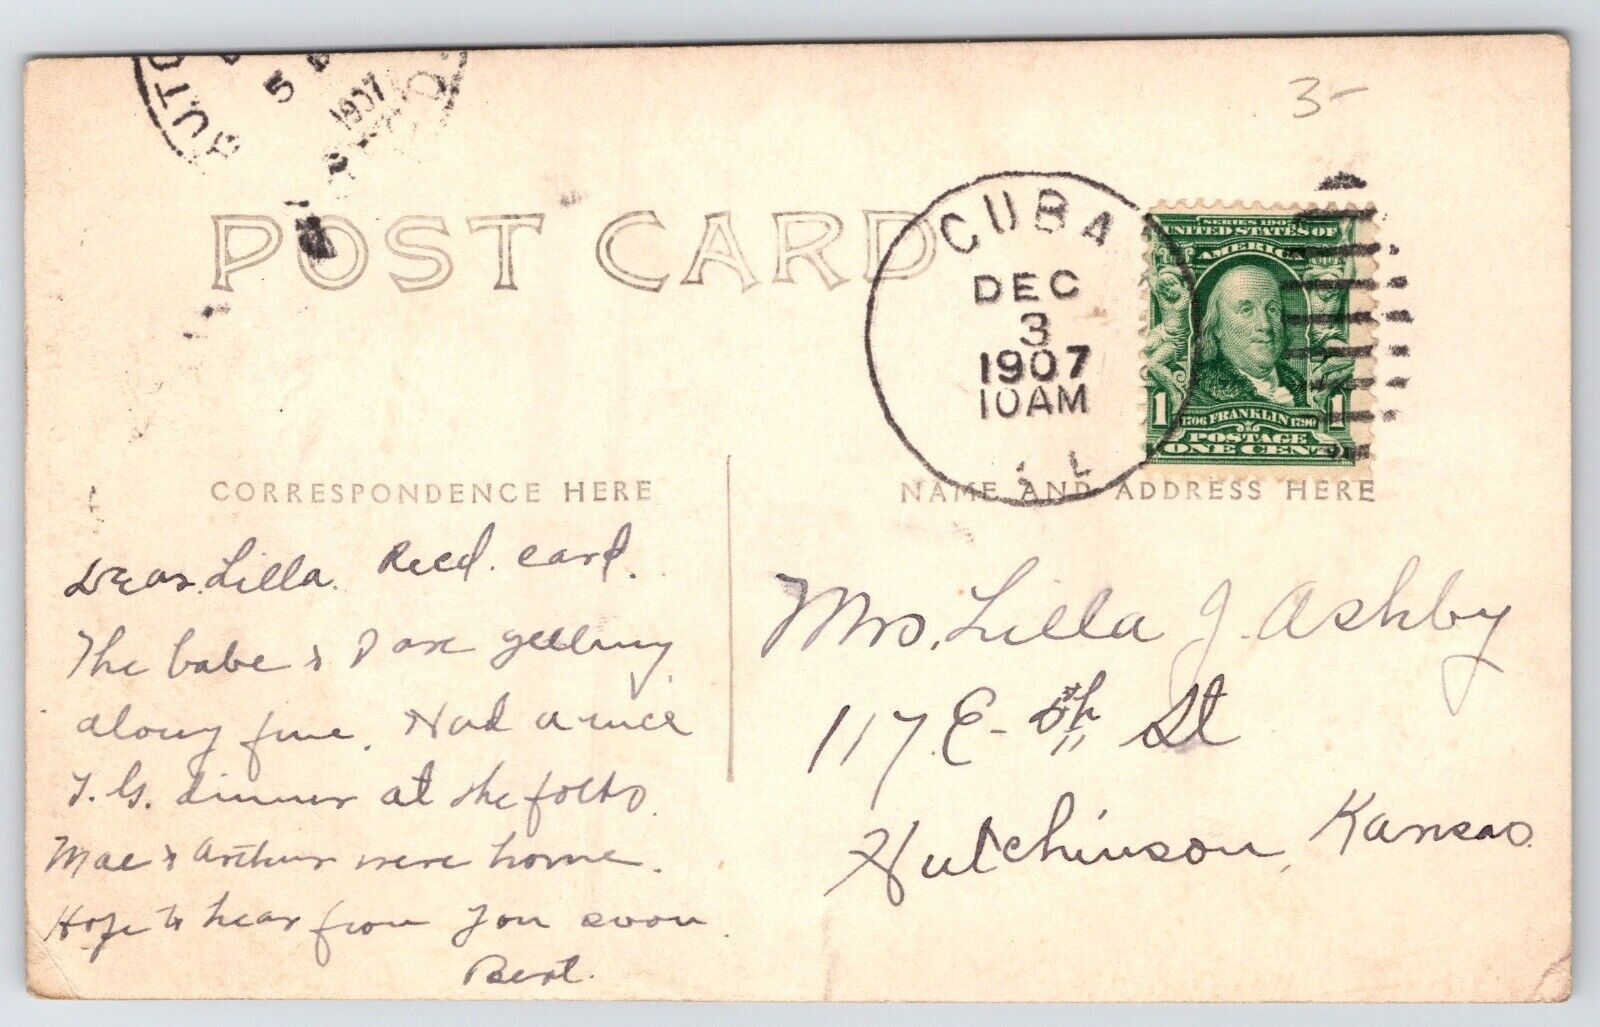 HUTC
5
1907
3-
POST CARD
CUBA
DEC
3
1907
10AM
ILL
SERIES 1902
UNITED STATES OF
AMERICA
1 1706 FRANKLIN 1790 1
POSTAGE
ONE CENT
CORRESPONDENCE HERE
NAME AND ADDRESS HERE
Dear Lilla. Recd. card.
The babe & I are getting
along fine. Had a nice
T. G. dinner at the folks.
Mae & Arthur were home.
Hope to hear from you soon.
Bert.
Mrs. Lilla J. Ashby
117. E- 6th St
Hutchinson, Kansas.